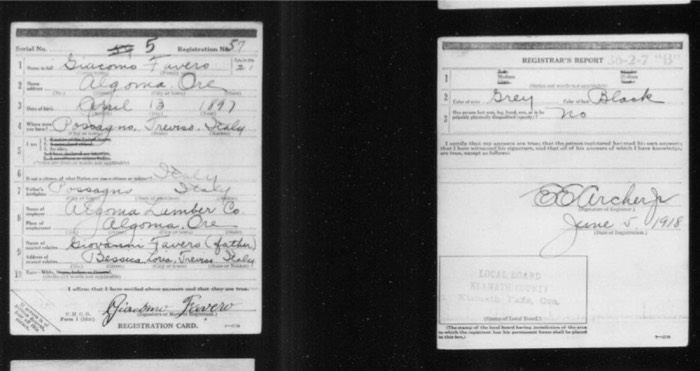 Serial No. 5 Registration No. 57
1 Name in full Giacomo Favero 21
2 Home address Algoma, Ore
3 Date of birth April 13 1897
4 Where were you born? Possagno, Treviso, Italy
5 I am
6 Italy
If not a citizen, of what Nation are you a citizen or subject?
7 Father's birthplace Possagno Italy
8 Name of employer Algoma Lumber Co.
Place of employment Algoma, Ore
9 Name of nearest relative Giovanni Favero (father)
Address of nearest relative Treviso Italy
10 Race—White
I affirm that I have verified above answers and that they are true.
P. M. G. O.
Form 1
Giacomo Favero
(Signature or Mark of Registrant.)
REGISTRATION CARD.
REGISTRAR'S REPORT 36-2-7 "B"
1
2 Color of eyes Grey Color of hair Black
3 Has person lost arm, leg, hand, eye, or is he palpably physically disqualified (specify)? No
I certify that my answers are true, that the person registered has read his own answers, that I have witnessed his signature, and that all of his answers of which I have knowledge, are true, except as follows:
E E Archer Jr
(Signature of Registrar.)
June 5 1918
(Date of Registration.)
LOCAL BOARD
KLAMATH COUNTY
Klamath Falls, Ore.
(Stamp of Local Board.)
(The stamp of the local board having jurisdiction of the area in which the registrant has his permanent home shall be placed in this box.)